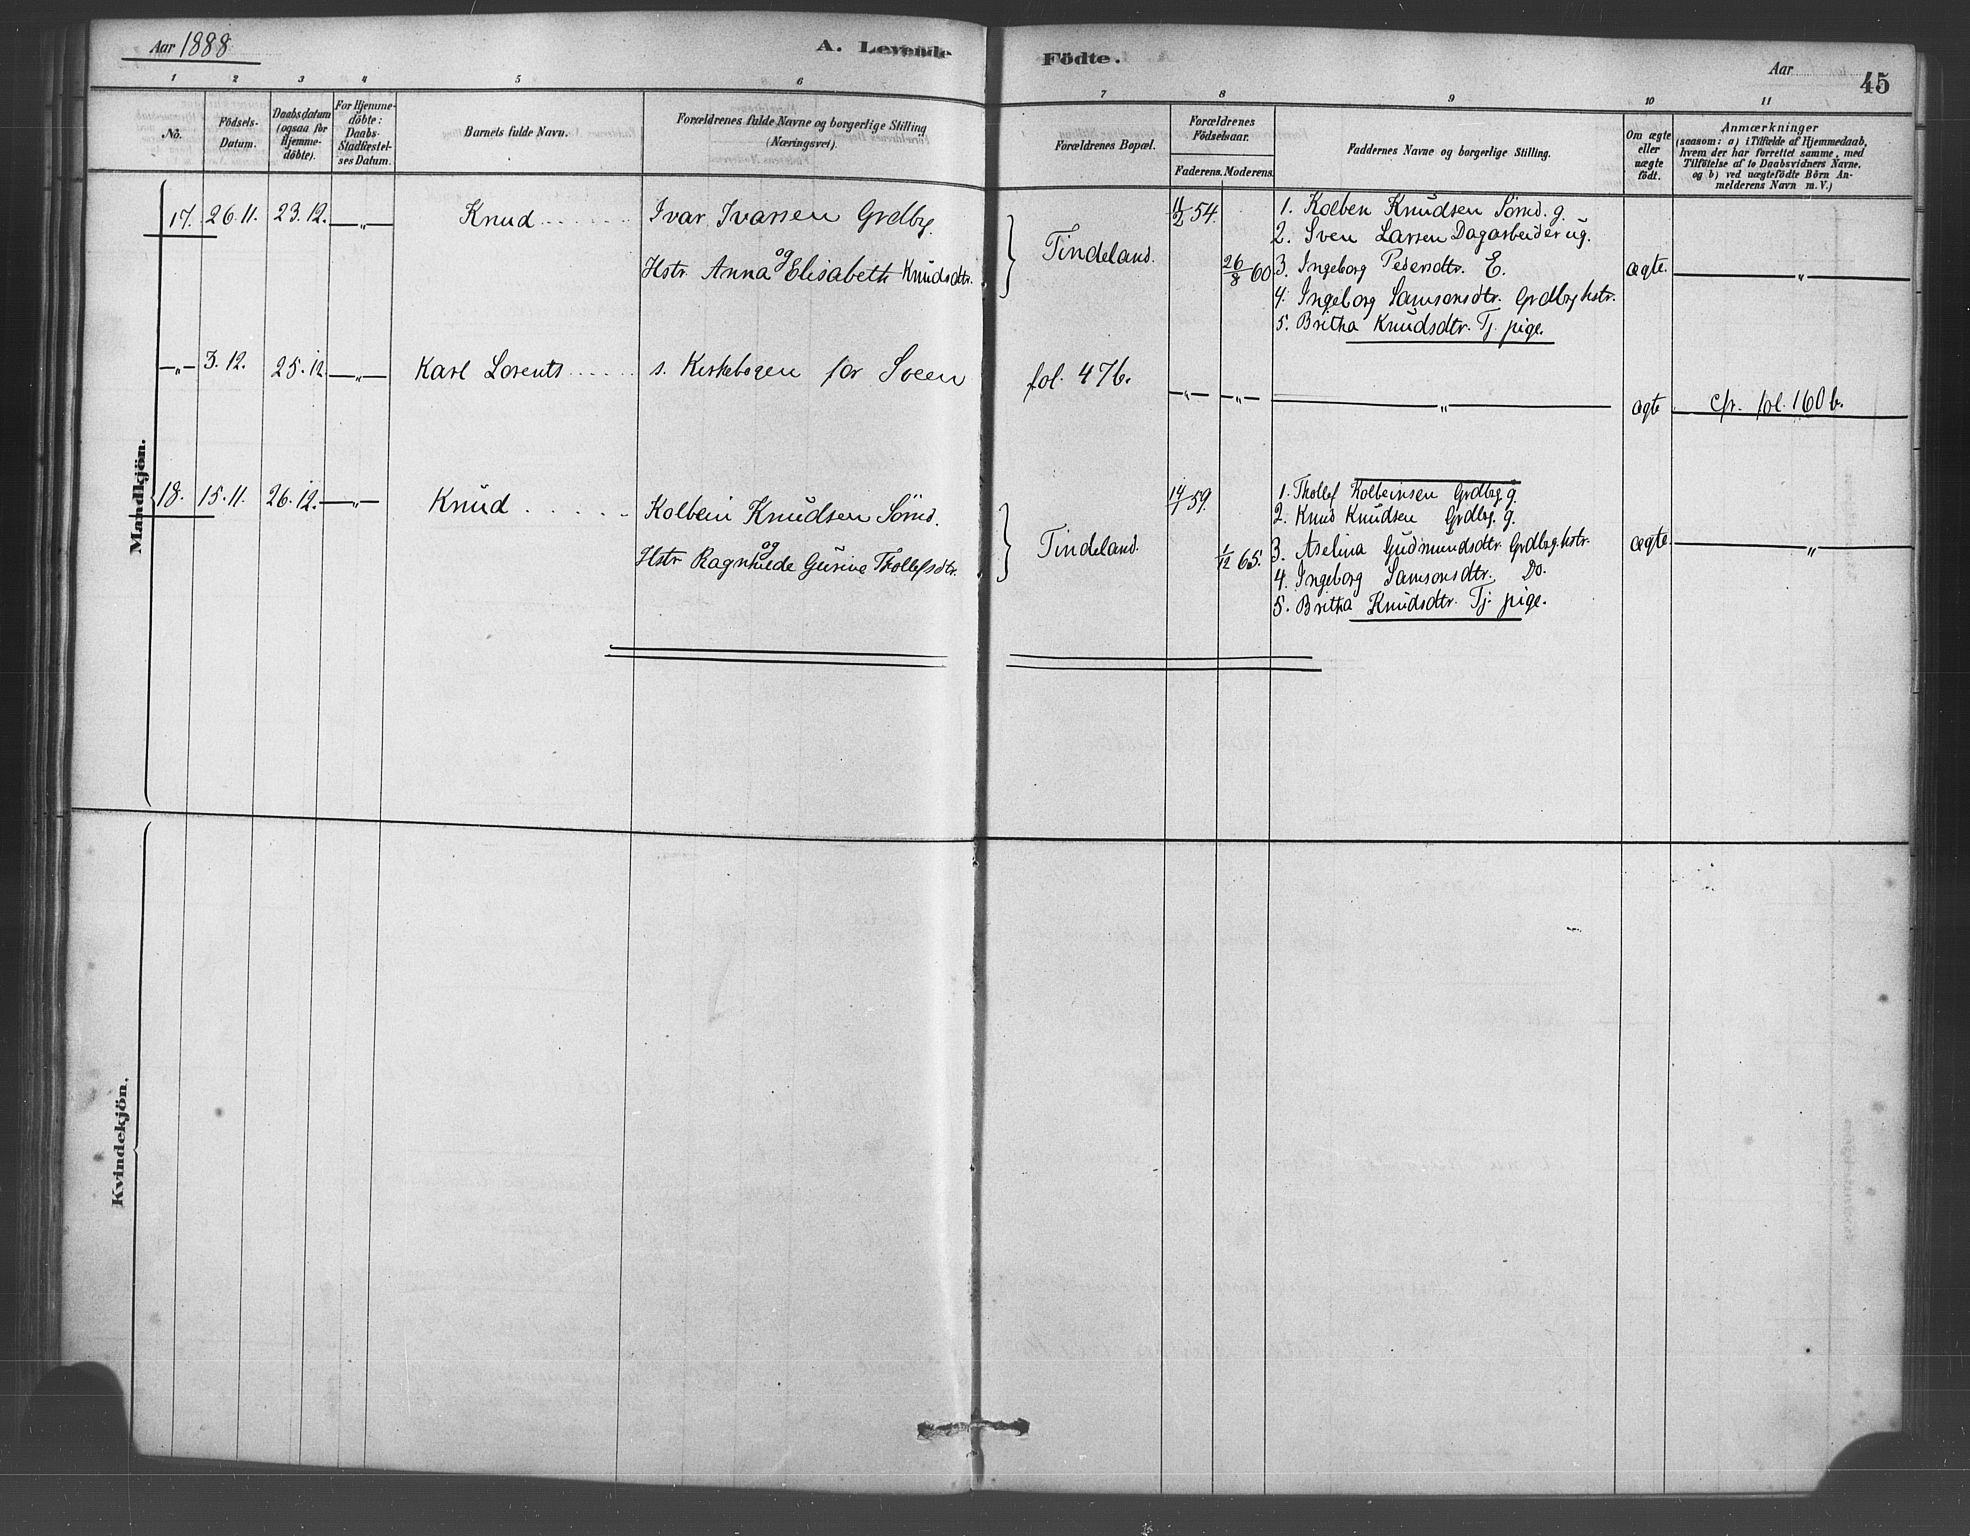 Aar 1888
A. Levende Födte.
Aar
45
1 2 3 4 5 6 7 8 9 10 11
No.
Födsels-Datum.
Daabsdatum (ogsaa for Hjemme-döbte).
For Hjemme-döbte: Daabs-Stadfæstel-ses Datum.
Barnets fulde Navn.
Forældrenes fulde Navne og borgerlige Stilling (Næringsvei).
Forældrenes Bopæl.
Forældrenes Födselsaar.
Faderens. Moderens.
Faddernes Navne og borgerlige Stilling.
Om ægte eller uægte födt.
Anmærkninger
(saasom: a) i Tilfælde af Hjemmedaab,
hvem der har forrettet samme, med
Tilföielse af to Daabsvidners Navne,
og b) ved uægtefödte Börn An-
melderens Navn m. V.)
Mandkjön.
17. 26.11. 23.12. —„— Knud
Ivar Ivarsen Grdbg.
og
Hstr. Anna Elisabeth Knudsdtr.
Tindeland.
11/2 54.
26/8 60
1. Kolben Knudsen Sömd. g.
2. Sven Larsen Dagarbeider ug.
3. Ingeborg Pedersdtr. E.
4. Ingeborg Samsonsdtr. Grdbg hstr.
5. Britha Knudsdtr. Tj. pige.
ægte.
—„—
—„— 3.12. 25.12. —„— Karl Lorents
s. Kirkebogen for Sveen
fol. 476.
—„— —„— —„—
ægte
cfr. fol. 160 b.
18. 15.11. 26.12. —„— Knud
Kolbein Knudsen Sömd.
og
Hstr Ragnhilde Gurine Thollefsdtr.
Tindeland.
59.
1/12 65.
1. Thollef Kolbeinsen Grdbg. g.
2. Knud Knudsen Grdbg. g.
3. Aselina Gudmundsdtr. Grdbg. hstr.
4. Ingeborg Samsonsdtr. Do.
5. Britha Knudsdtr. Tj. pige.
ægte.
—„—
Kvindekjön.